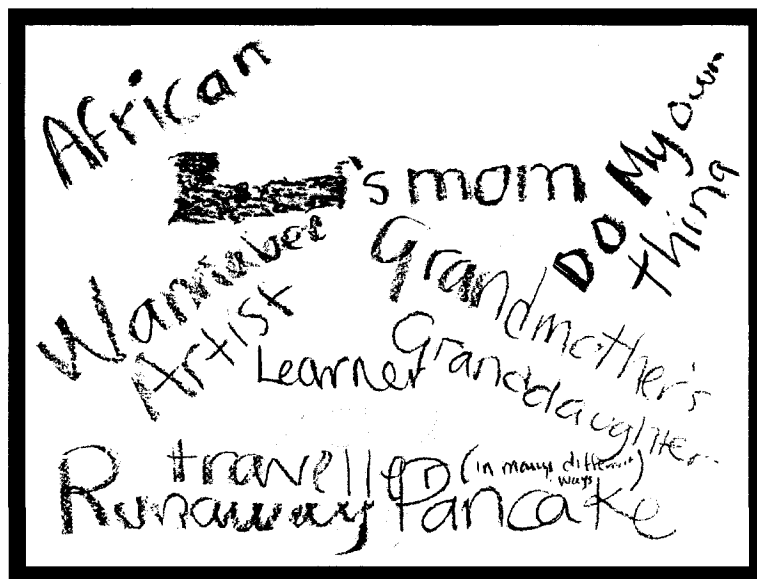 African
's mom
Do My Own
thing
Wannabee
Artist
Grandmother's
Granddaughter
Learner
traveller (in many different
ways)
Runaway Pancake